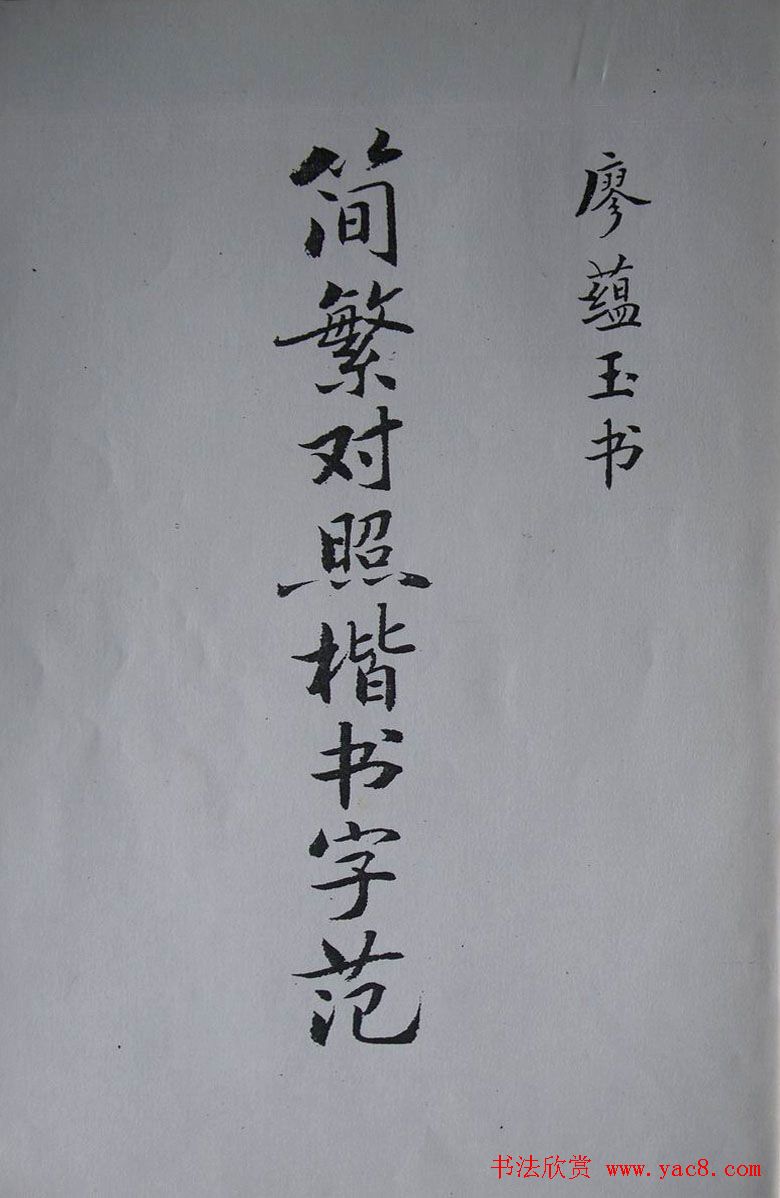 廖蕴玉书
简繁对照楷书字范
书法欣赏 www.yac8.com